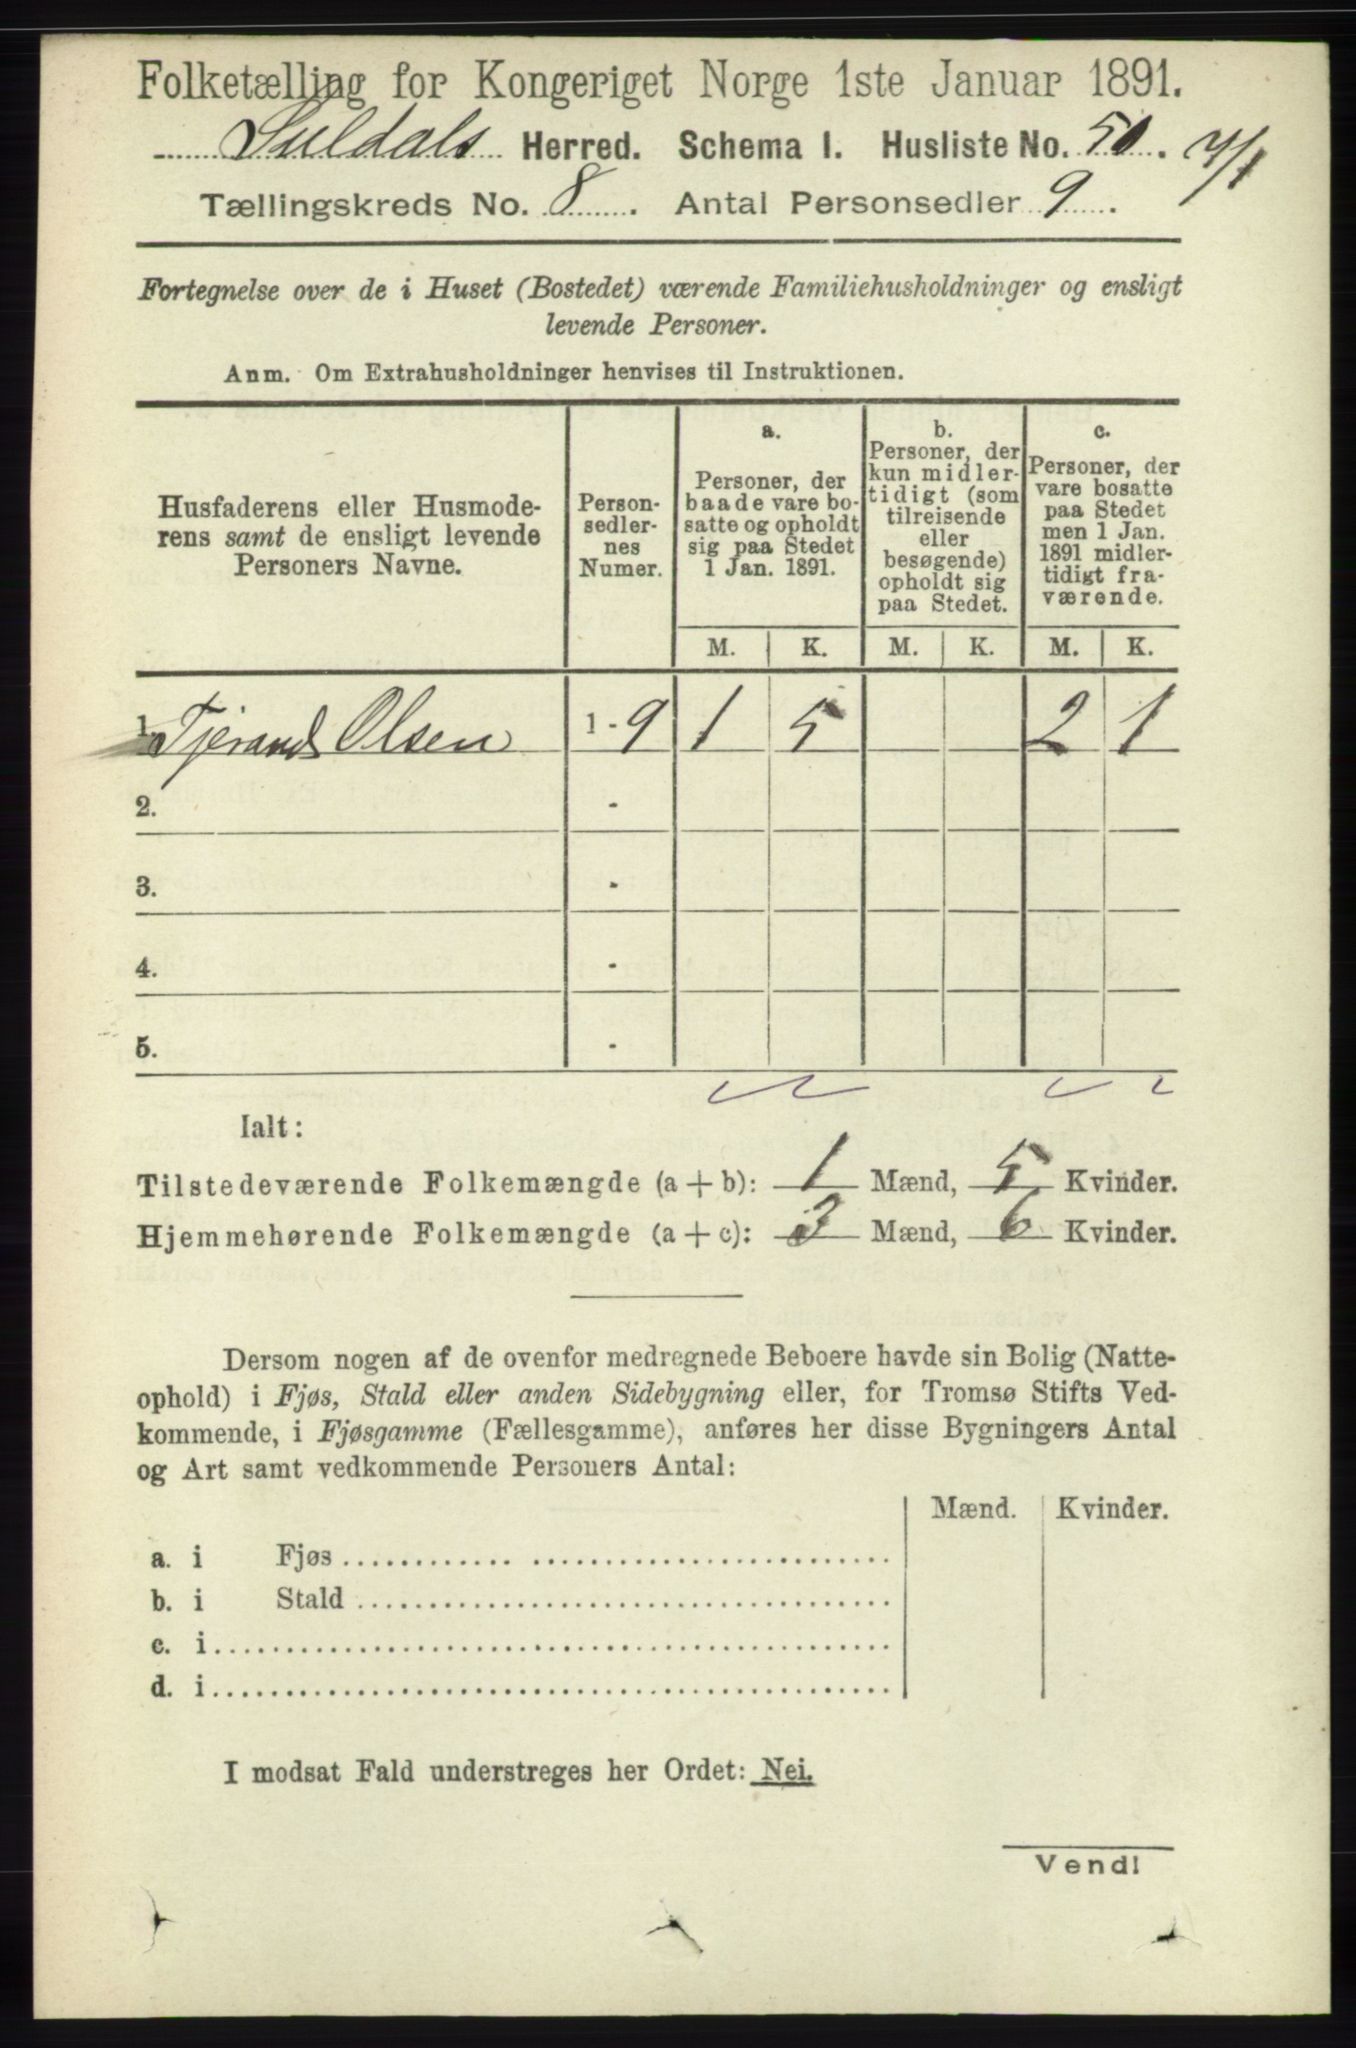 Folketælling for Kongeriget Norge 1ste Januar 1891.
Suldals Herred. Schema I. Husliste No. 50. 7/1
Tællingskreds No. 8. Antal Personsedler 9.
Fortegnelse over de i Huset (Bostedet) værende Familiehusholdninger og ensligt
levende Personer.
Anm. Om Extrahusholdninger henvises til Instruktionen.
Husfaderens eller Husmode-
rens samt de ensligt levende
Personers Navne.
Person-
sedler-
nes
Numer.
a.
Personer, der
baade vare bo-
satte og opholdt
sig paa Stedet
1 Jan. 1891.
b.
Personer, der
kun midler-
tidigt (som
tilreisende
eller
besøgende)
opholdt sig
paa Stedet.
c.
Personer, der
vare bosatte
paa Stedet
men 1 Jan.
1891 midler-
tidigt fra-
værende.
M. K. M. K. M. K.
1. Tjerand Olsen 1 - 9 1 5 2 1
2. -
3. -
4. -
5. -
Ialt:
Tilstedeværende Folkemængde (a + b): 1 Mænd, 5 Kvinder.
Hjemmehørende Folkemængde (a + c): 3 Mænd, 6 Kvinder.
Dersom nogen af de ovenfor medregnede Beboere havde sin Bolig (Natte-
ophold) i Fjøs, Stald eller anden Sidebygning eller, for Tromsø Stifts Ved-
kommende, i Fjøsgamme (Fællesgamme), anføres her disse Bygningers Antal
og Art samt vedkommende Personers Antal:
Mænd. Kvinder.
a. i Fjøs
b. i Stald
c. i
d. i
I modsat Fald understreges her Ordet: Nei.
Vend!